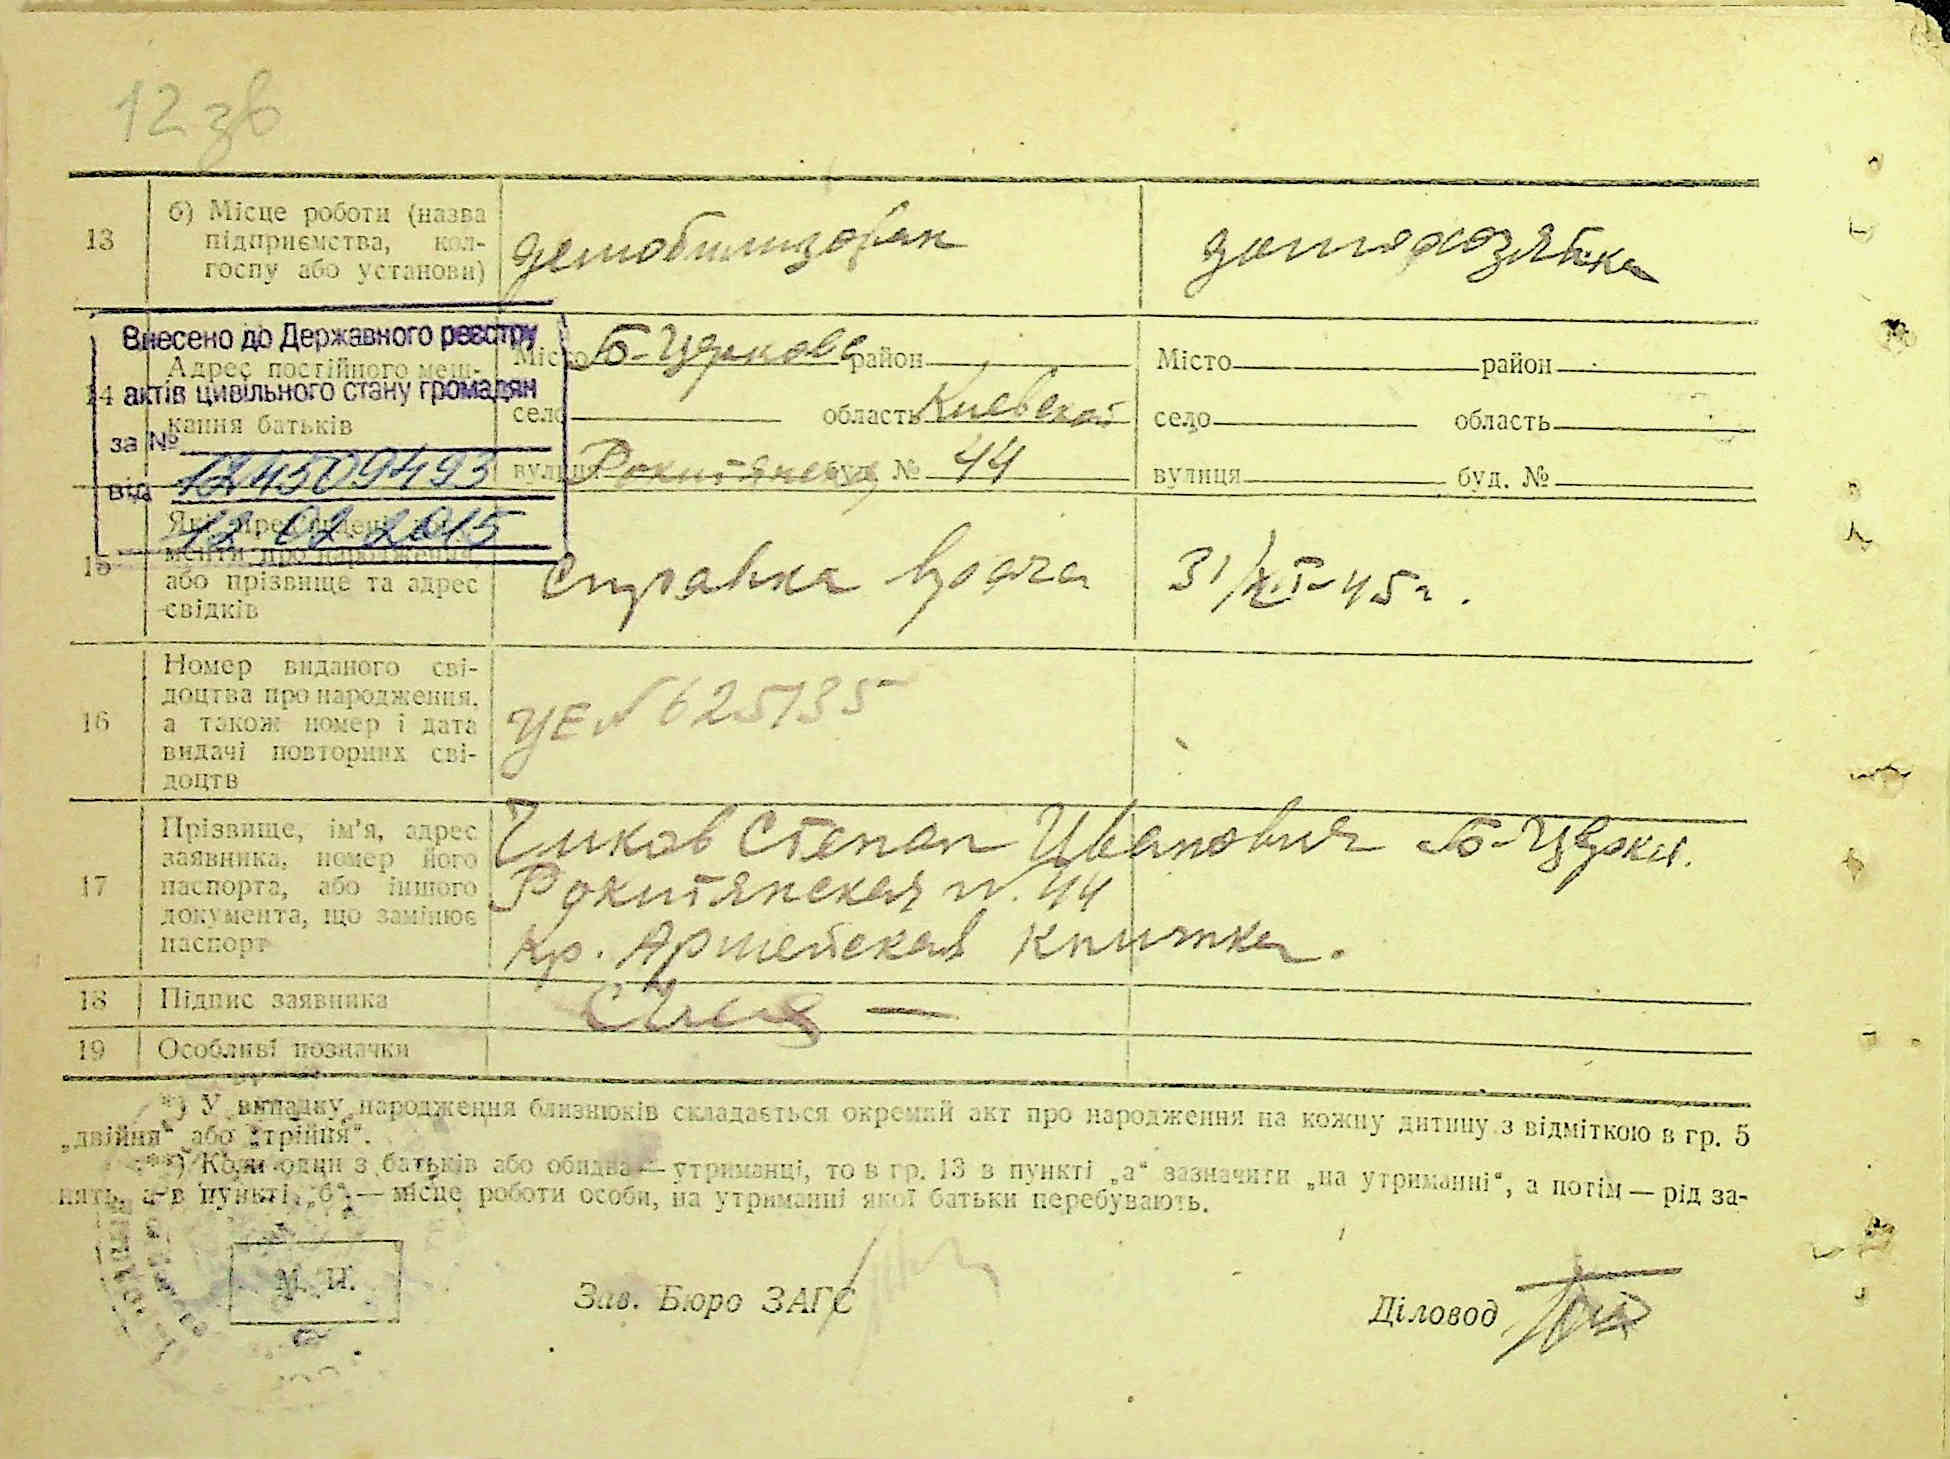 12 зв
13
б) Місце роботи (назва
підприємства, кол-
госпу або установи)
демобилизован
домохозяйка
Внесено до Державного реєстру
актів цивільного стану громадян
за № 124509493
від 12 02 2015
14
Адрес постійного меш-
кання батьків
Місто Б-Церковь район
село область Киевская
вулиця Рокитянская буд. № 44
Місто район
село область
вулиця буд. №
15
або прізвище та адрес
свідків
Справка врача
45г.
16
Номер виданого сві-
доцтва про народження,
а також номер і дата
видачі повторних сві-
доцтв
УЕ № 625135
17
Прізвище, ім'я, адрес
заявника, номер його
паспорта, або іншого
документа, що замінює
паспорт
Степан Иванович Б-Церки.
Рокитянская н. 44
Кр. Армейская книжка.
18
Підпис заявника
19
Особливі позначки
*) У випадку народження близнюків складається окремий акт про народження на кожну дитину з відміткою в гр. 5
„двійня“ або „трійня“.
**) Коли один з батьків або обидва — утриманці, то в гр. 13 в пункті „а“ зазначити „на утриманні“, а потім — рід за-
нять, а в пункті „б“ — місце роботи особи, на утриманні якої батьки перебувають.
М. П.
Зав. Бюро ЗАГС
Діловод